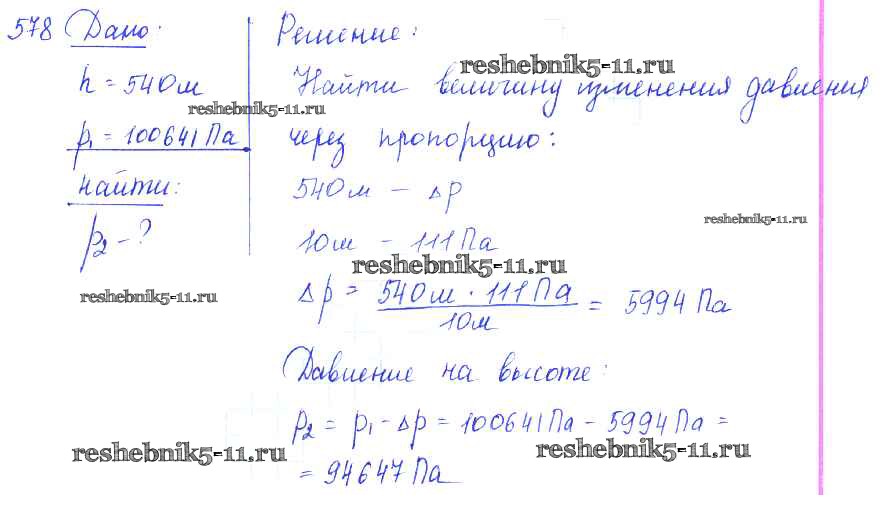 578 Дано:
h = 540 м
p₁ = 100641 Па
найти:
p₂ - ?
Решение:
Найти величину изменения давления
через пропорцию:
540 м — Δp
10 м — 111 Па
Δp = 540 м · 111 Па / 10 м = 5994 Па
Давление на высоте:
p₂ = p₁ - Δp = 100641 Па - 5994 Па =
= 94647 Па
reshebnik5-11.ru
reshebnik5-11.ru
reshebnik5-11.ru
reshebnik5-11.ru
reshebnik5-11.ru
reshebnik5-11.ru
reshebnik5-11.ru